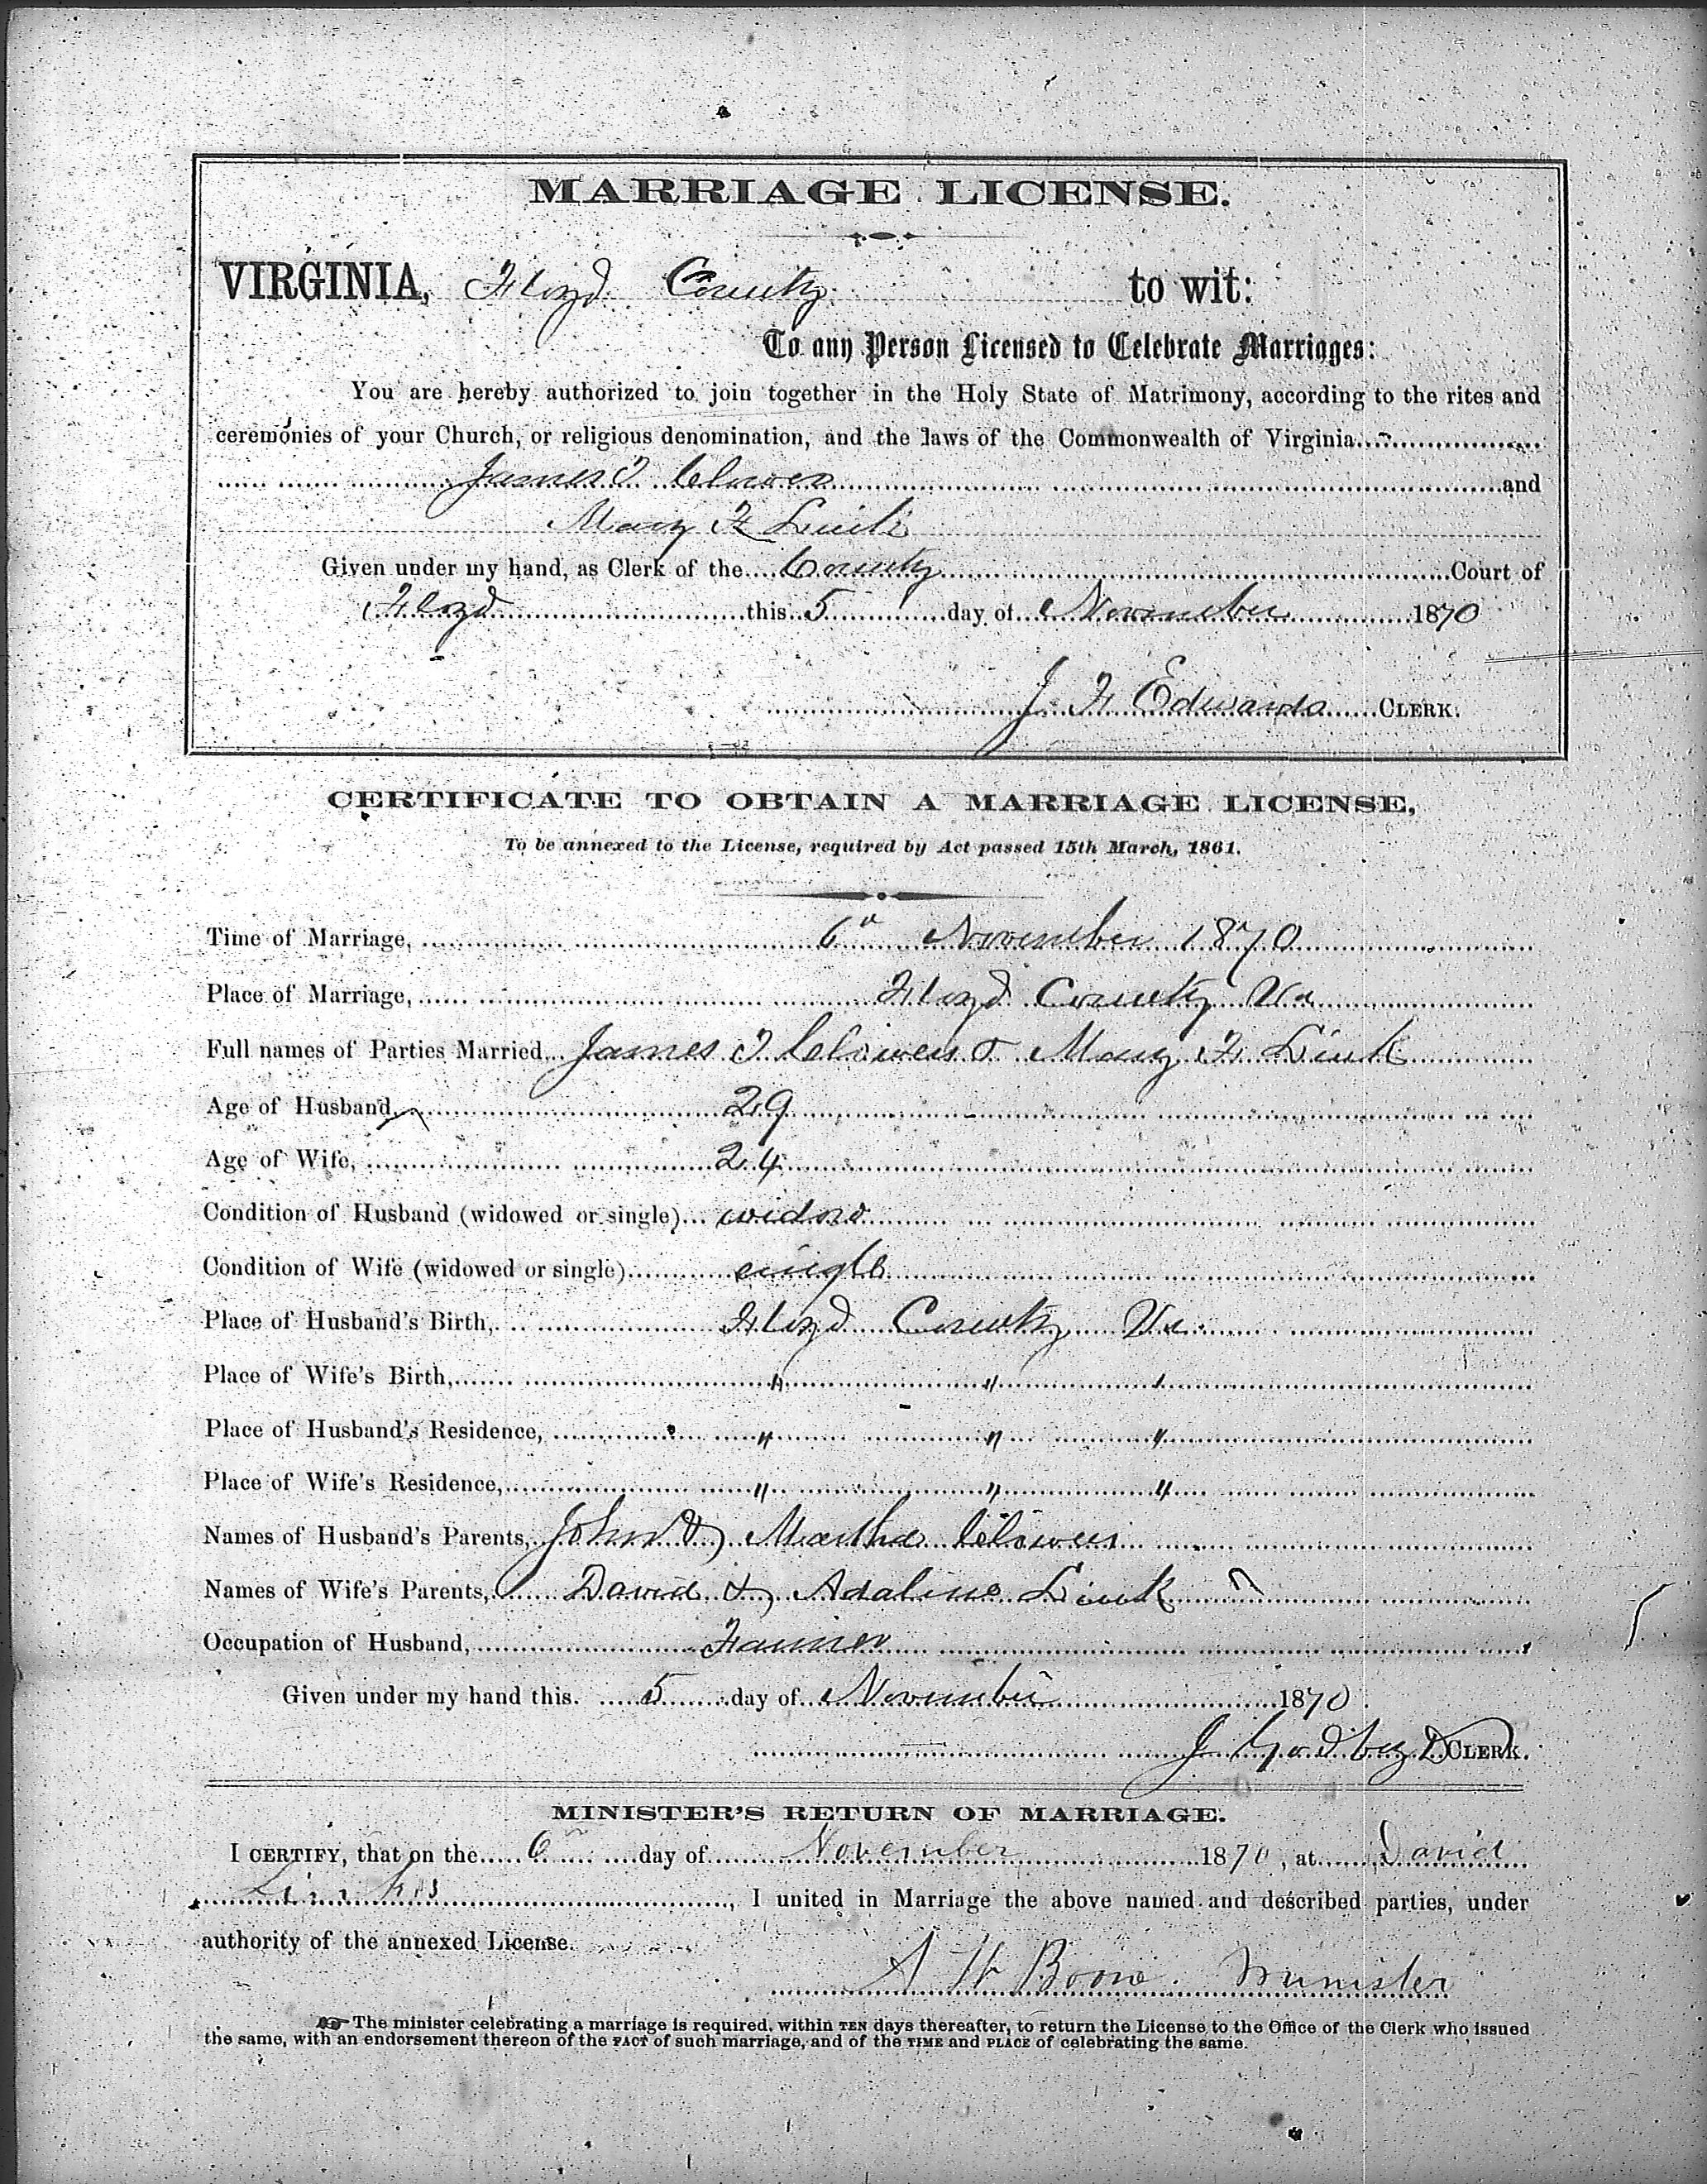 MARRIAGE LICENSE.
VIRGINIA, Floyd County to wit:
To any Person Licensed to Celebrate Marriages:
You are hereby authorized to join together in the Holy State of Matrimony, according to the rites and
ceremonies of your Church, or religious denomination, and the laws of the Commonwealth of Virginia
James T Clower and
Mary F Link
Given under my hand, as Clerk of the County Court of
Floyd this 5 day of November 1870
J F Edwards CLERK.
CERTIFICATE TO OBTAIN A MARRIAGE LICENSE,
To be annexed to the License, required by Act passed 15th March, 1861.
Time of Marriage, 6th November 1870
Place of Marriage, Floyd County Va
Full names of Parties Married, James T Clower & Mary F Link
Age of Husband, 29
Age of Wife, 24
Condition of Husband (widowed or single) widow
Condition of Wife (widowed or single) single
Place of Husband's Birth, Floyd County Va
Place of Wife's Birth, " " "
Place of Husband's Residence, " " "
Place of Wife's Residence, " " "
Names of Husband's Parents, John & Martha Clower
Names of Wife's Parents, David & Adaline Link
Occupation of Husband, Farmer
Given under my hand this 5 day of November 1870
J Godbey D CLERK.
MINISTER'S RETURN OF MARRIAGE.
I CERTIFY, that on the 6 day of November 1870, at David
Links, I united in Marriage the above named and described parties, under
authority of the annexed License.
Boone. Minister
The minister celebrating a marriage is required, within TEN days thereafter, to return the License to the Office of the Clerk who issued
the same, with an endorsement thereon of the FACT of such marriage, and of the TIME and PLACE of celebrating the same.